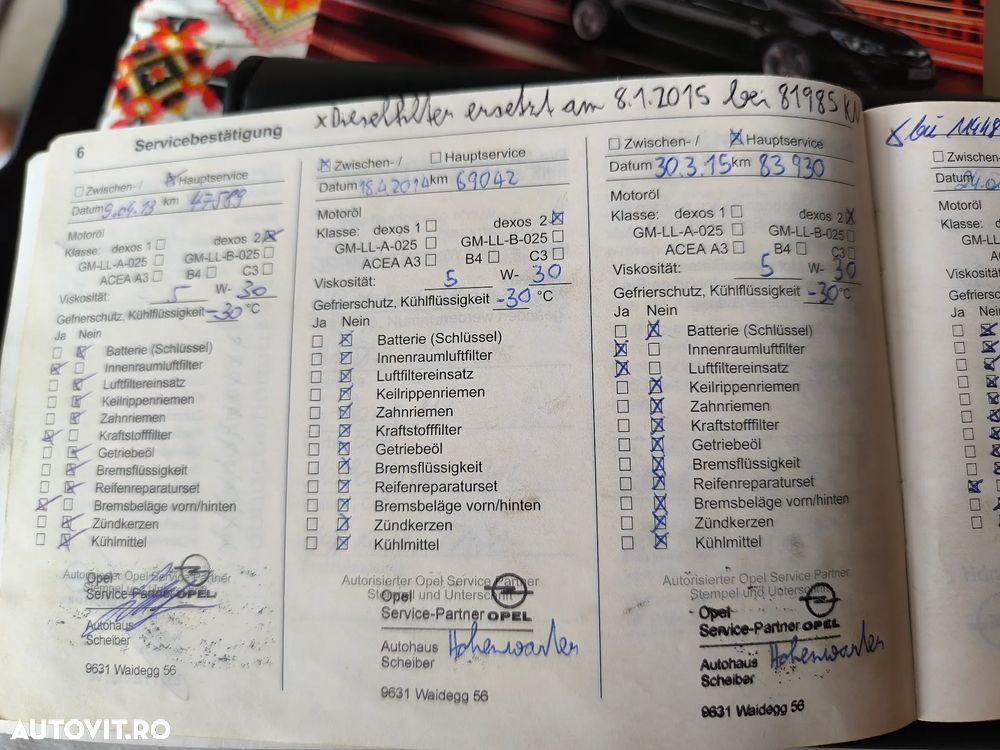 x Dieselfilter ersetzt am 8.1.2015 bei 81985 KM
6 Servicebestätigung
Zwischen- / Hauptservice
Datum 9.04.13 km 47589
Motoröl
Klasse: dexos 1 dexos 2
GM-LL-A-025 GM-LL-B-025
ACEA A3 B4 C3
Viskosität: 5 W- 30
Gefrierschutz, Kühlflüssigkeit -30 °C
Ja Nein
Batterie (Schlüssel)
Innenraumluftfilter
Luftfiltereinsatz
Keilrippenriemen
Zahnriemen
Kraftstofffilter
Getriebeöl
Bremsflüssigkeit
Reifenreparaturset
Bremsbeläge vorn/hinten
Zündkerzen
Kühlmittel
Autorisierter Opel Service Partner
Stempel und Unterschrift
Opel
Service-Partner OPEL
Autohaus
Scheiber
9631 Waidegg 56
Zwischen- / Hauptservice
Datum 18.4.2014 km 69042
Motoröl
Klasse: dexos 1 dexos 2
GM-LL-A-025 GM-LL-B-025
ACEA A3 B4 C3
Viskosität: 5 W- 30
Gefrierschutz, Kühlflüssigkeit -30 °C
Ja Nein
Batterie (Schlüssel)
Innenraumluftfilter
Luftfiltereinsatz
Keilrippenriemen
Zahnriemen
Kraftstofffilter
Getriebeöl
Bremsflüssigkeit
Reifenreparaturset
Bremsbeläge vorn/hinten
Zündkerzen
Kühlmittel
Autorisierter Opel Service Partner
Stempel und Unterschrift
Opel
Service-Partner OPEL
Autohaus Hohenwarter
Scheiber
9631 Waidegg 56
Zwischen- / Hauptservice
Datum 30.3.15 km 83930
Motoröl
Klasse: dexos 1 dexos 2
GM-LL-A-025 GM-LL-B-025
ACEA A3 B4 C3
Viskosität: 5 W- 30
Gefrierschutz, Kühlflüssigkeit -30 °C
Ja Nein
Batterie (Schlüssel)
Innenraumluftfilter
Luftfiltereinsatz
Keilrippenriemen
Zahnriemen
Kraftstofffilter
Getriebeöl
Bremsflüssigkeit
Reifenreparaturset
Bremsbeläge vorn/hinten
Zündkerzen
Kühlmittel
Autorisierter Opel Service Partner
Stempel und Unterschrift
Opel
Service-Partner OPEL
Autohaus Hohenwarter
Scheiber
9631 Waidegg 56
x bei
Zwischen-
Datum
Motoröl
Klasse:
GM-LL
ACE
Viskosität
Gefriersc
Ja Nein
AUTOVIT.RO